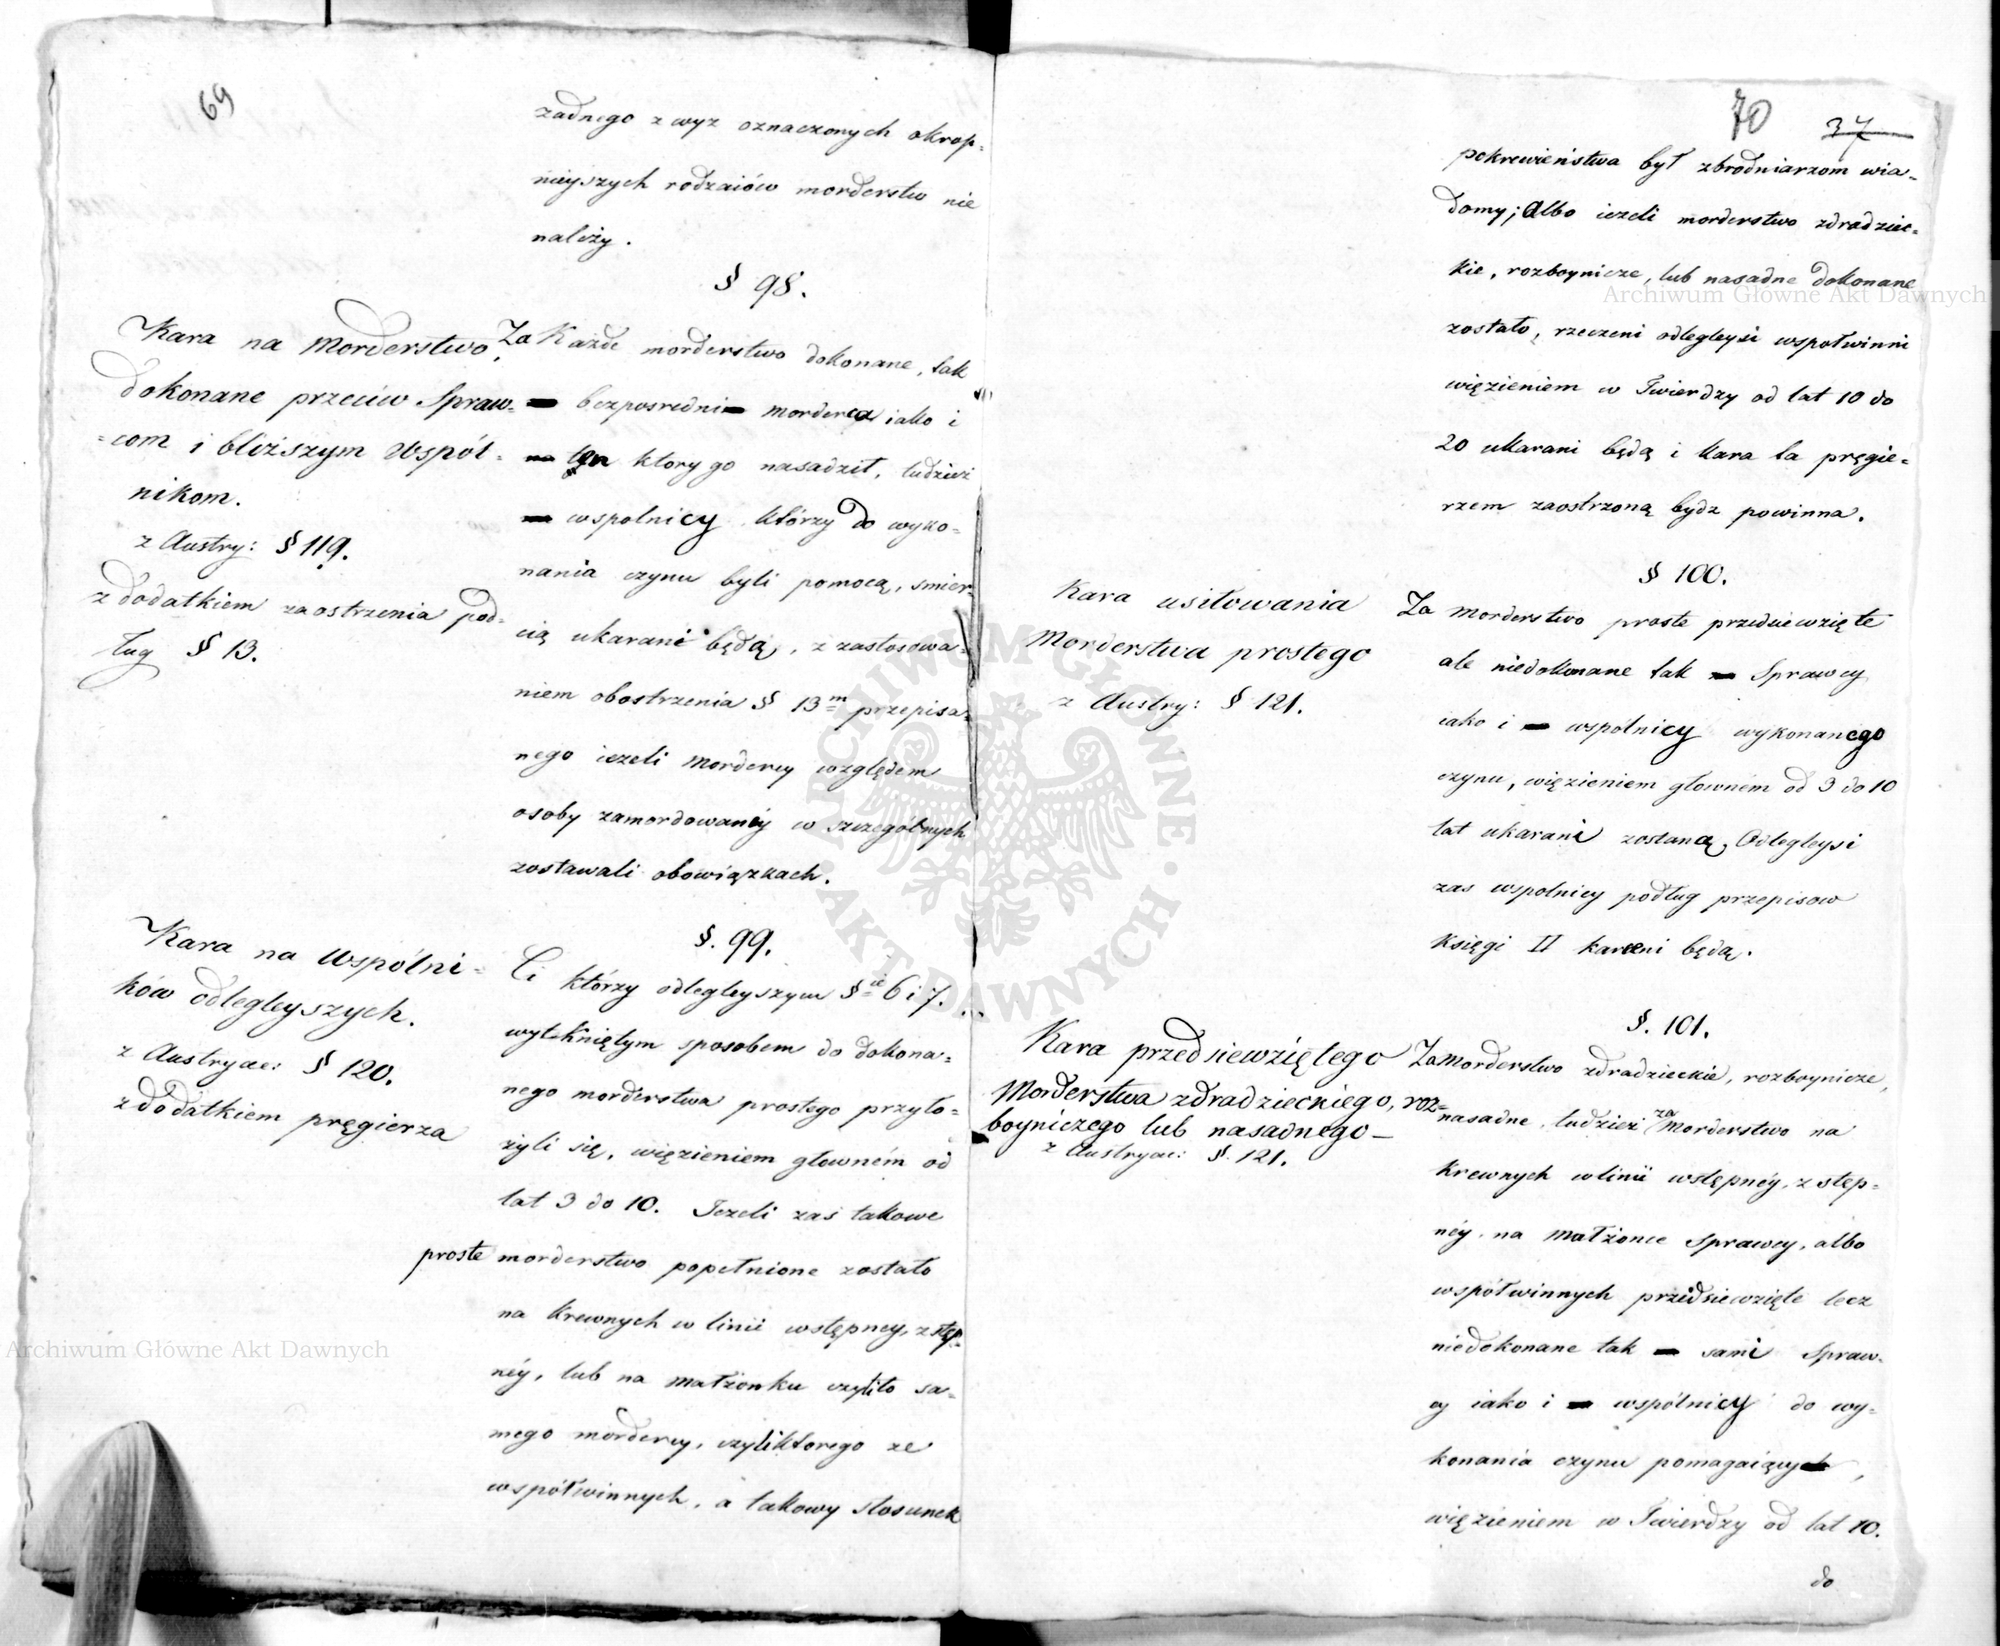 69
żadnego z wyz oznaczonych okrop-
nieyszych rodzaiów morderstw nie
należy.
§ 98.
Kara na Morderstwo
dokonane przeciw Spraw-
-com i bliższym Wspól-
nikom.
z Austry: § 119.
z dodatkiem zaostrzenia pod-
ług § 13.
Za Każde morderstwo dokonane, tak
bezposredni morderca iako i
ten ktory go nasadził, tudzież
wspolnicy którzy do wyko-
nania czynu byli pomocą, smier-
cią ukarani będą, z zastosowa-
niem obostrzenia § 13m przepisa-
nego ieżeli mordercy względem
osoby zamordowanéy w szczególnych
zostawali obowiązkach.
§. 99.
Kara na Wspólni-
ków odległeyszych.
z Austryac: § 120.
z dodatkiem pręgierza
Ci którzy odległeyszym §ie 6 i 7.
wytkniętym sposobem do dokona-
nego morderstwa prostego przyło-
żyli się, więzieniem głowném od
lat 3 do 10. Jeżeli zaś takowe
proste morderstwo popełnione zostało
na krewnych w linii wstępney, zstęp-
néy, lub na małżonku czyłito sa-
mego mordercy, czyliktorego ze
współwinnych, a takowy stosunek
70 37
pokrewieństwa był zbrodniarzom wia-
domy; Albo ieżeli morderstwo zdradziec-
kie, rozboynicze, lub nasadne dokonane
zostało, rzeczeni odlegleysi wspołwinni
więzieniem w Twierdzy od lat 10 do
20 ukarani będą i kara ta pręgie-
rzem zaostrzoną bydz powinna.
§ 100.
Kara usiłowania
Morderstwa prostego
z Austry: § 121.
Za morderstwo proste przedsiewzięte
ale niedokonane tak Sprawcy
iako i wspólnicy wykonanego
czynu, więzieniem głowném od 3 do 10
lat ukarani zostaną, Odlegleysi
zas wspolnicy podług przepisow
Księgi II karani będą.
§. 101.
Kara przedsiewziętego
Morderstwa zdradzieckiego, roz-
boyniczego lub nasadnego -
z Austryac: §. 121.
Za morderstwo zdradzieckie, rozboynicze,
nasadne, tudzież za morderstwo na
krewnych w linii wstępnéy, zstęp-
néy, na małżonce Sprawcy, albo
współwinnych przedsiewzięte lecz
niedokonane tak sami Spraw-
cy iako i wspólnicy do wy-
konania czynu pomagaiący,
więzieniem w Twierdzy od lat 10.
do
Archiwum Główne Akt Dawnych
Archiwum Główne Akt Dawnych
ARCHIWUM GŁÓWNE · AKT DAWNYCH ·